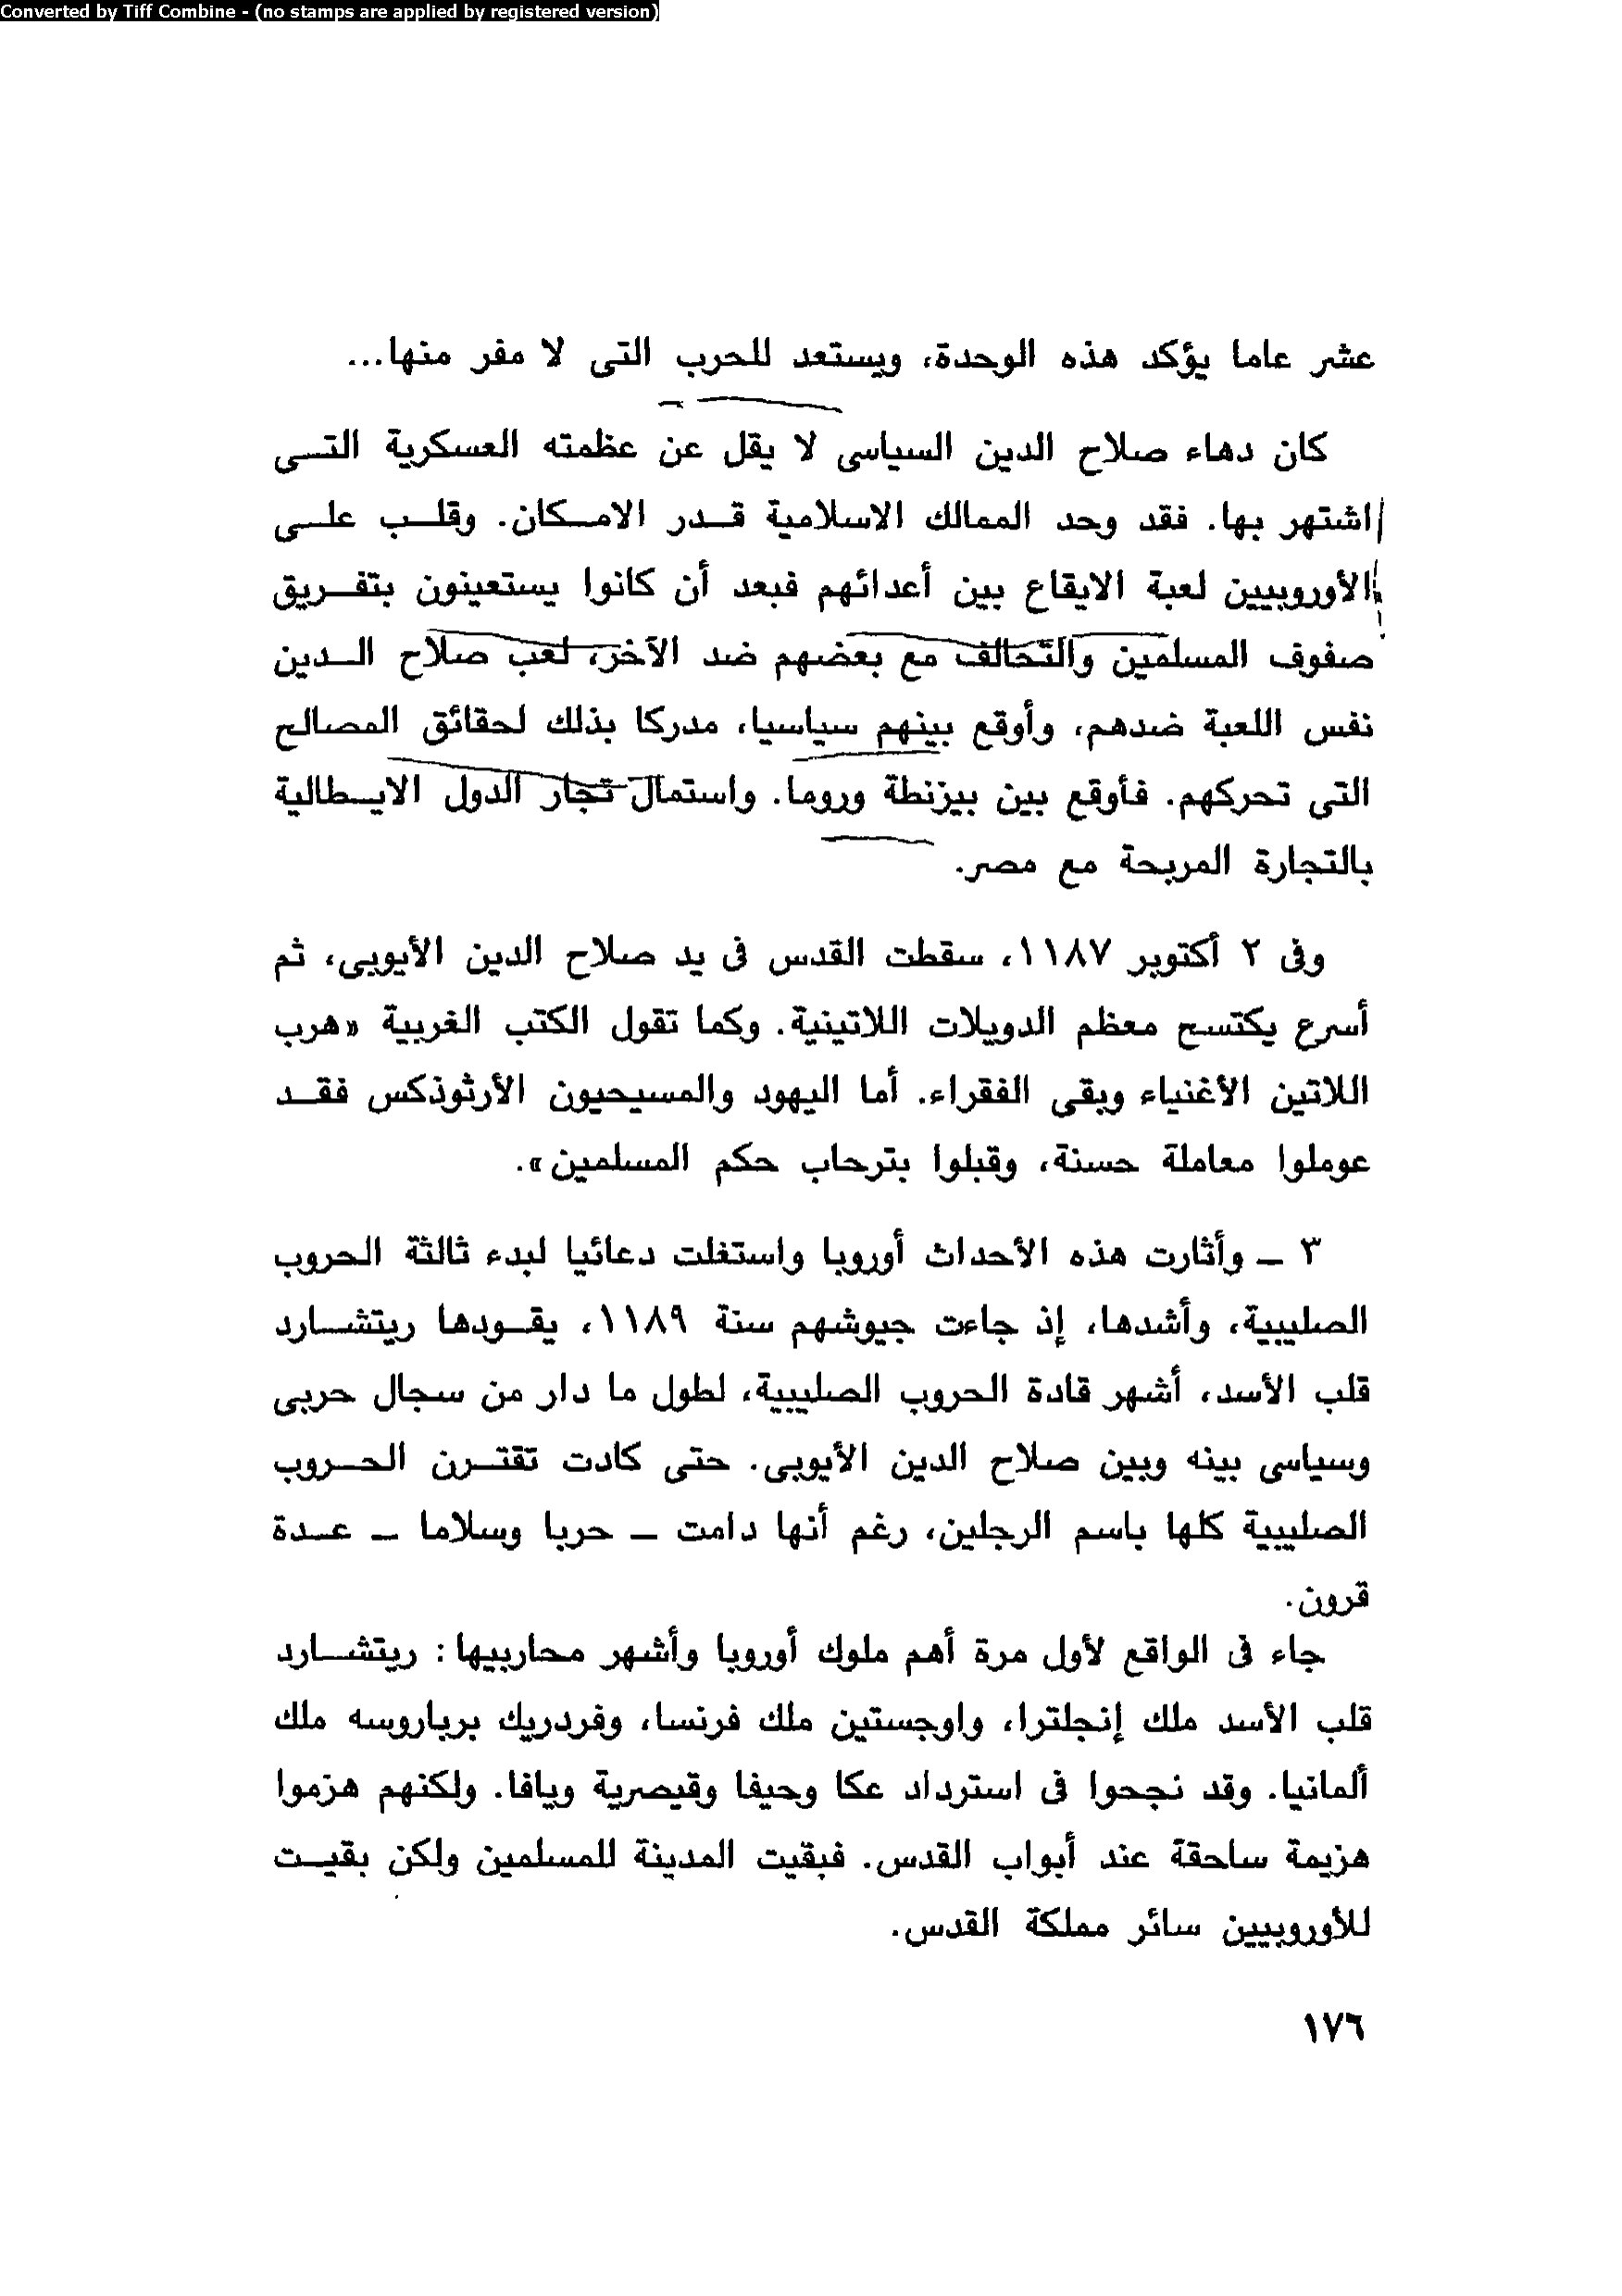 Converted by Tiff Combine - (no stamps are applied by registered version)
عشر عاما يؤكد هذه الوحدة، ويستعد للحرب التى لا مفر منها...
كان دهاء صلاح الدين السياسى لا يقل عن عظمته العسكرية التى
اشتهر بها. فقد وحد الممالك الاسلامية قدر الامكان. وقلب على
الأوروبيين لعبة الايقاع بين أعدائهم فبعد أن كانوا يستعينون بتفريق
صفوف المسلمين والتحالف مع بعضهم ضد الآخر، لعب صلاح الدين
نفس اللعبة ضدهم، وأوقع بينهم سياسيا، مدركا بذلك لحقائق المصالح
التى تحركهم. فأوقع بين بيزنطة وروما. واستمال تجار الدول الايطالية
بالتجارة المربحة مع مصر.
وفى ٢ أكتوبر ١١٨٧، سقطت القدس فى يد صلاح الدين الأيوبى، ثم
أسرع يكتسح معظم الدويلات اللاتينية. وكما تقول الكتب الغربية «هرب
اللاتين الأغنياء وبقى الفقراء. أما اليهود والمسيحيون الأرثوذكس فقد
عوملوا معاملة حسنة، وقبلوا بترحاب حكم المسلمين».
٣ – وأثارت هذه الأحداث أوروبا واستغلت دعائيا لبدء ثالثة الحروب
الصليبية، وأشدها، إذ جاءت جيوشهم سنة ١١٨٩، يقودها ريتشارد
قلب الأسد، أشهر قادة الحروب الصليبية، لطول ما دار من سجال حربى
وسياسى بينه وبين صلاح الدين الأيوبى. حتى كادت تقترن الحروب
الصليبية كلها باسم الرجلين، رغم أنها دامت – حربا وسلاما – عدة
قرون.
جاء فى الواقع لأول مرة أهم ملوك أوروبا وأشهر محاربيها: ريتشارد
قلب الأسد ملك إنجلترا، واوجستين ملك فرنسا، وفردريك برباروسه ملك
ألمانيا. وقد نجحوا فى استرداد عكا وحيفا وقيصرية ويافا. ولكنهم هزموا
هزيمة ساحقة عند أبواب القدس. فبقيت المدينة للمسلمين ولكن بقيت
للأوروبيين سائر مملكة القدس.
١٧٦